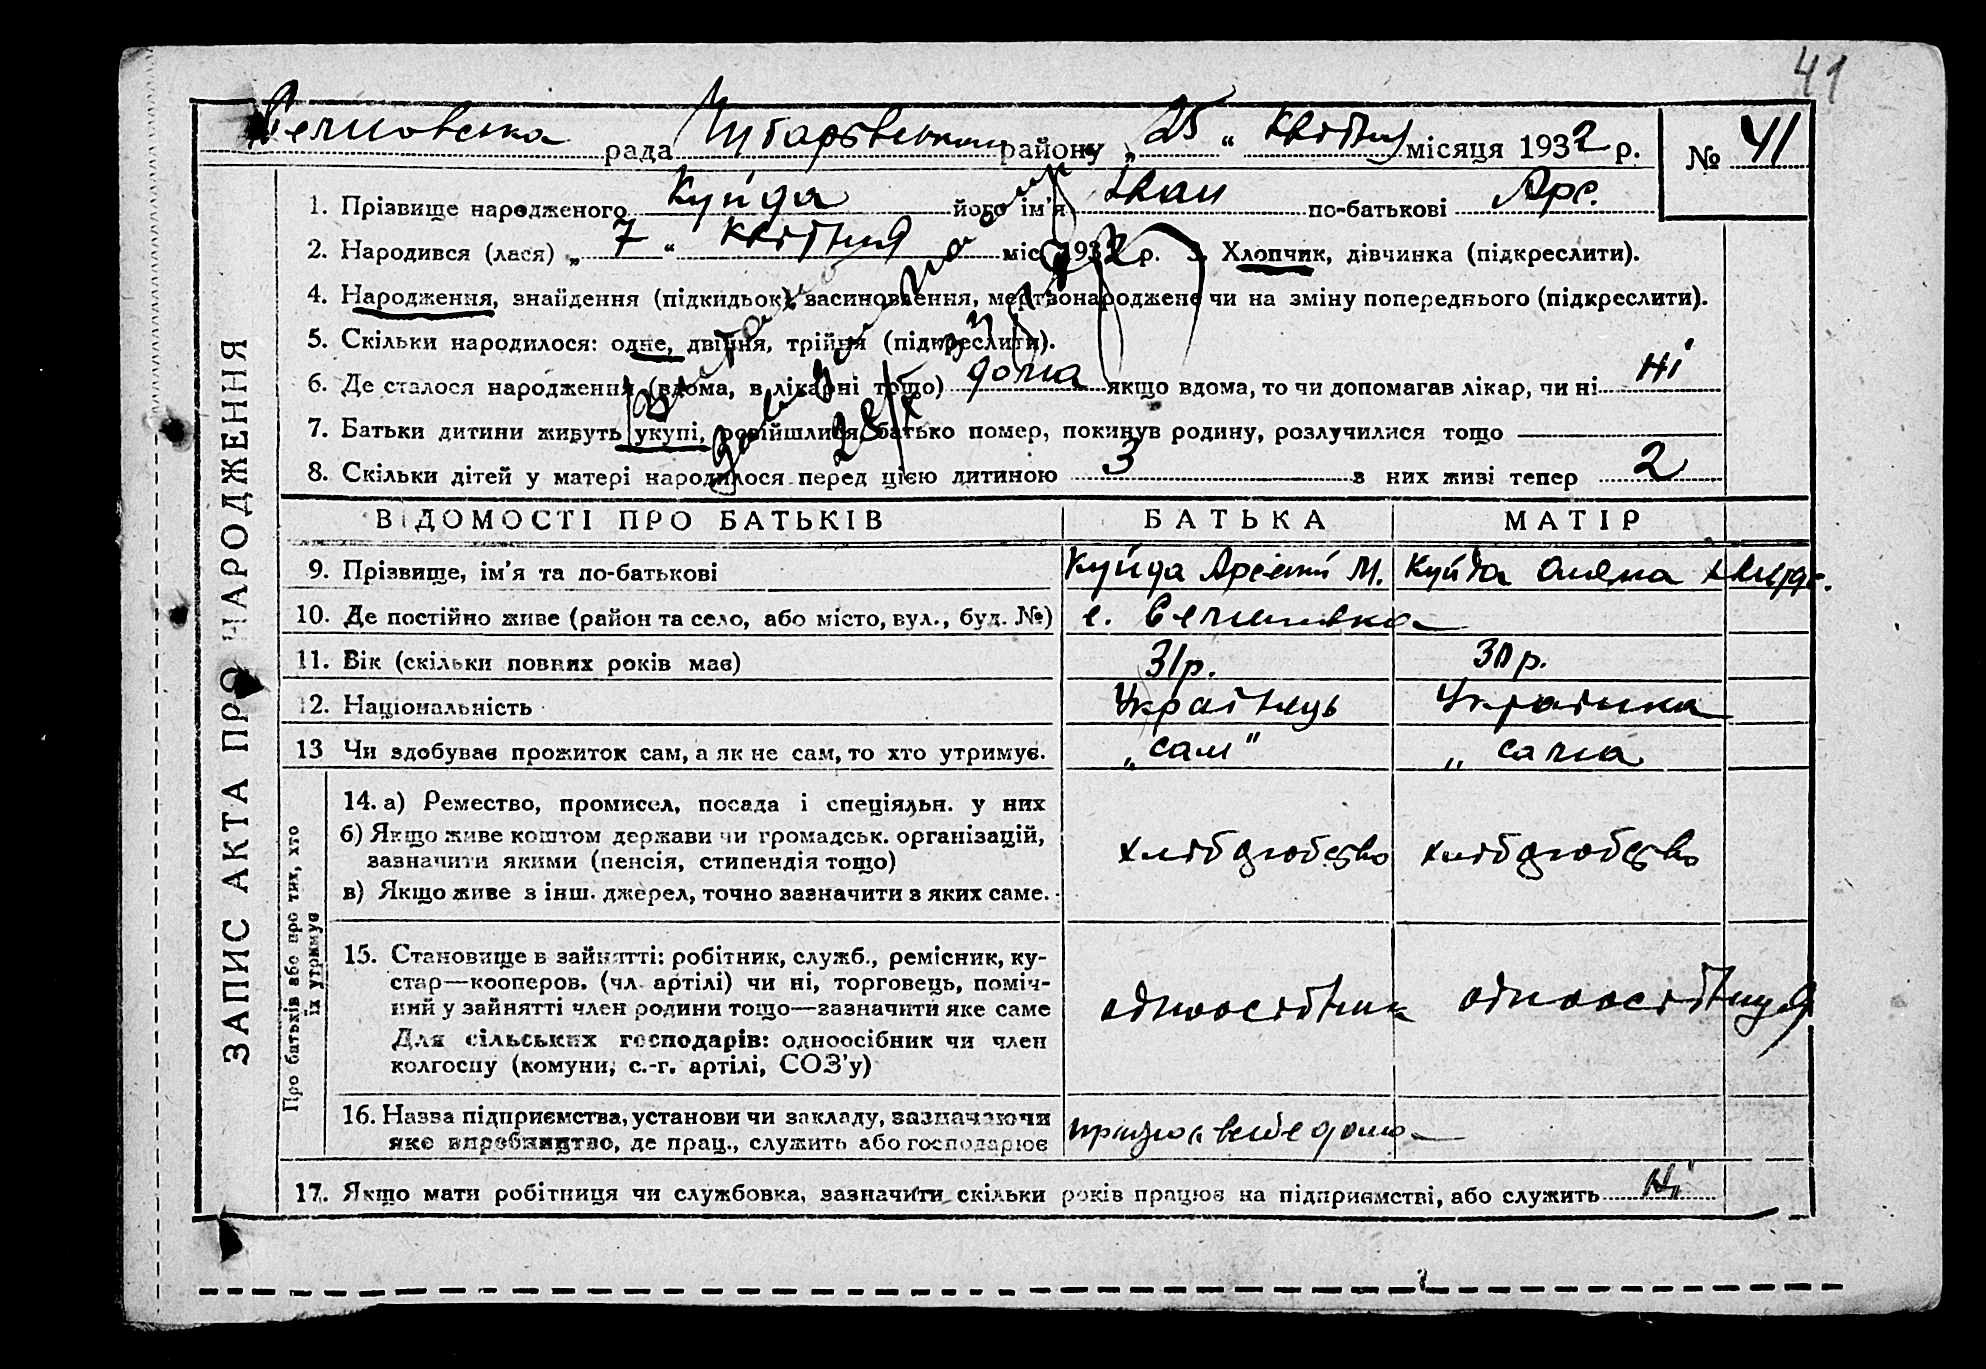 41
рада Чубарівського району „ 25 “ квітня місяця 1932 р. № 41
ЗАПИС АКТА ПРО НАРОДЖЕННЯ
1. Прізвище народженого Куйда його ім'я Іван по-батькові Арс.
2. Народився (лася) „ 7 “ квітня міс. 1932 р. 3. Хлопчик, дівчинка (підкреслити).
4. Народження, знайдення (підкидьок), засиновлення, мертвонароджене чи на зміну попереднього (підкреслити).
5. Скільки народилося: одне, двійня, трійня (підкреслити).
6. Де сталося народження (вдома, в лікарні тощо) дома якщо вдома, то чи допомагав лікар, чи ні Ні
7. Батьки дитини живуть укупі, розійшлися, батько помер, покинув родину, розлучилися тощо
8. Скільки дітей у матері народилося перед цією дитиною 3 з них живі тепер 2
28/X
ВІДОМОСТІ ПРО БАТЬКІВ БАТЬКА МАТІР
9. Прізвище, ім'я та по-батькові Куйда Арсеній М. Куйда Оляна
10. Де постійно живе (район та село, або місто, вул., буд. №) с.
11. Вік (скільки повних років має) 31 р. 30 р.
12. Національність Українець Українка
13 Чи здобуває прожиток сам, а як не сам, то хто утримує. „сам" „ сама
Про батьків або про тих, хто
їх утримує
14. а) Ремество, промисел, посада і спеціяльн. у них
б) Якщо живе коштом держави чи громадськ. організацій,
зазначити якими (пенсія, стипендія тощо) хлібодюбство хлібодюбство
в) Якщо живе з інш. джерел, точно зазначити з яких саме.
15. Становище в зайнятті: робітник, служб., ремісник, ку-
стар—кооперов. (чл. артілі) чи ні, торговець, поміч-
ний у зайнятті член родини тощо—зазначити яке саме одноосібник одноосібниця
Для сільських господарів: одноосібник чи член
колгоспу (комуни, с.-г. артілі, СОЗ'у)
16. Назва підприємства, установи чи закладу, зазначаючи
яке виробництво, де прац., служить або господарює працює в себе дома
17. Якщо мати робітниця чи службовка, зазначити скільки років працює на підприємстві, або служить Ні